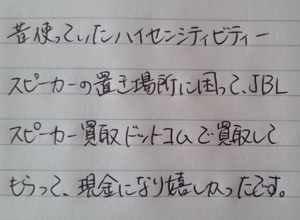 昔使っていたハイセンシティビティー
スピーカーの置き場所に困って、JBL
スピーカー買取ドットコムで買取して
もらって、現金になり嬉しかったです。